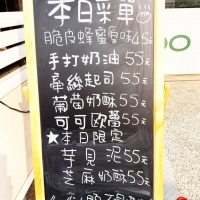 本日菜單
脆皮蜂蜜原味45元
手打奶油55元
牽絲起司55元
葡萄奶酥55元
可可歐蕾55元
★本日限定
芋見泥55元
芝麻奶酥55元